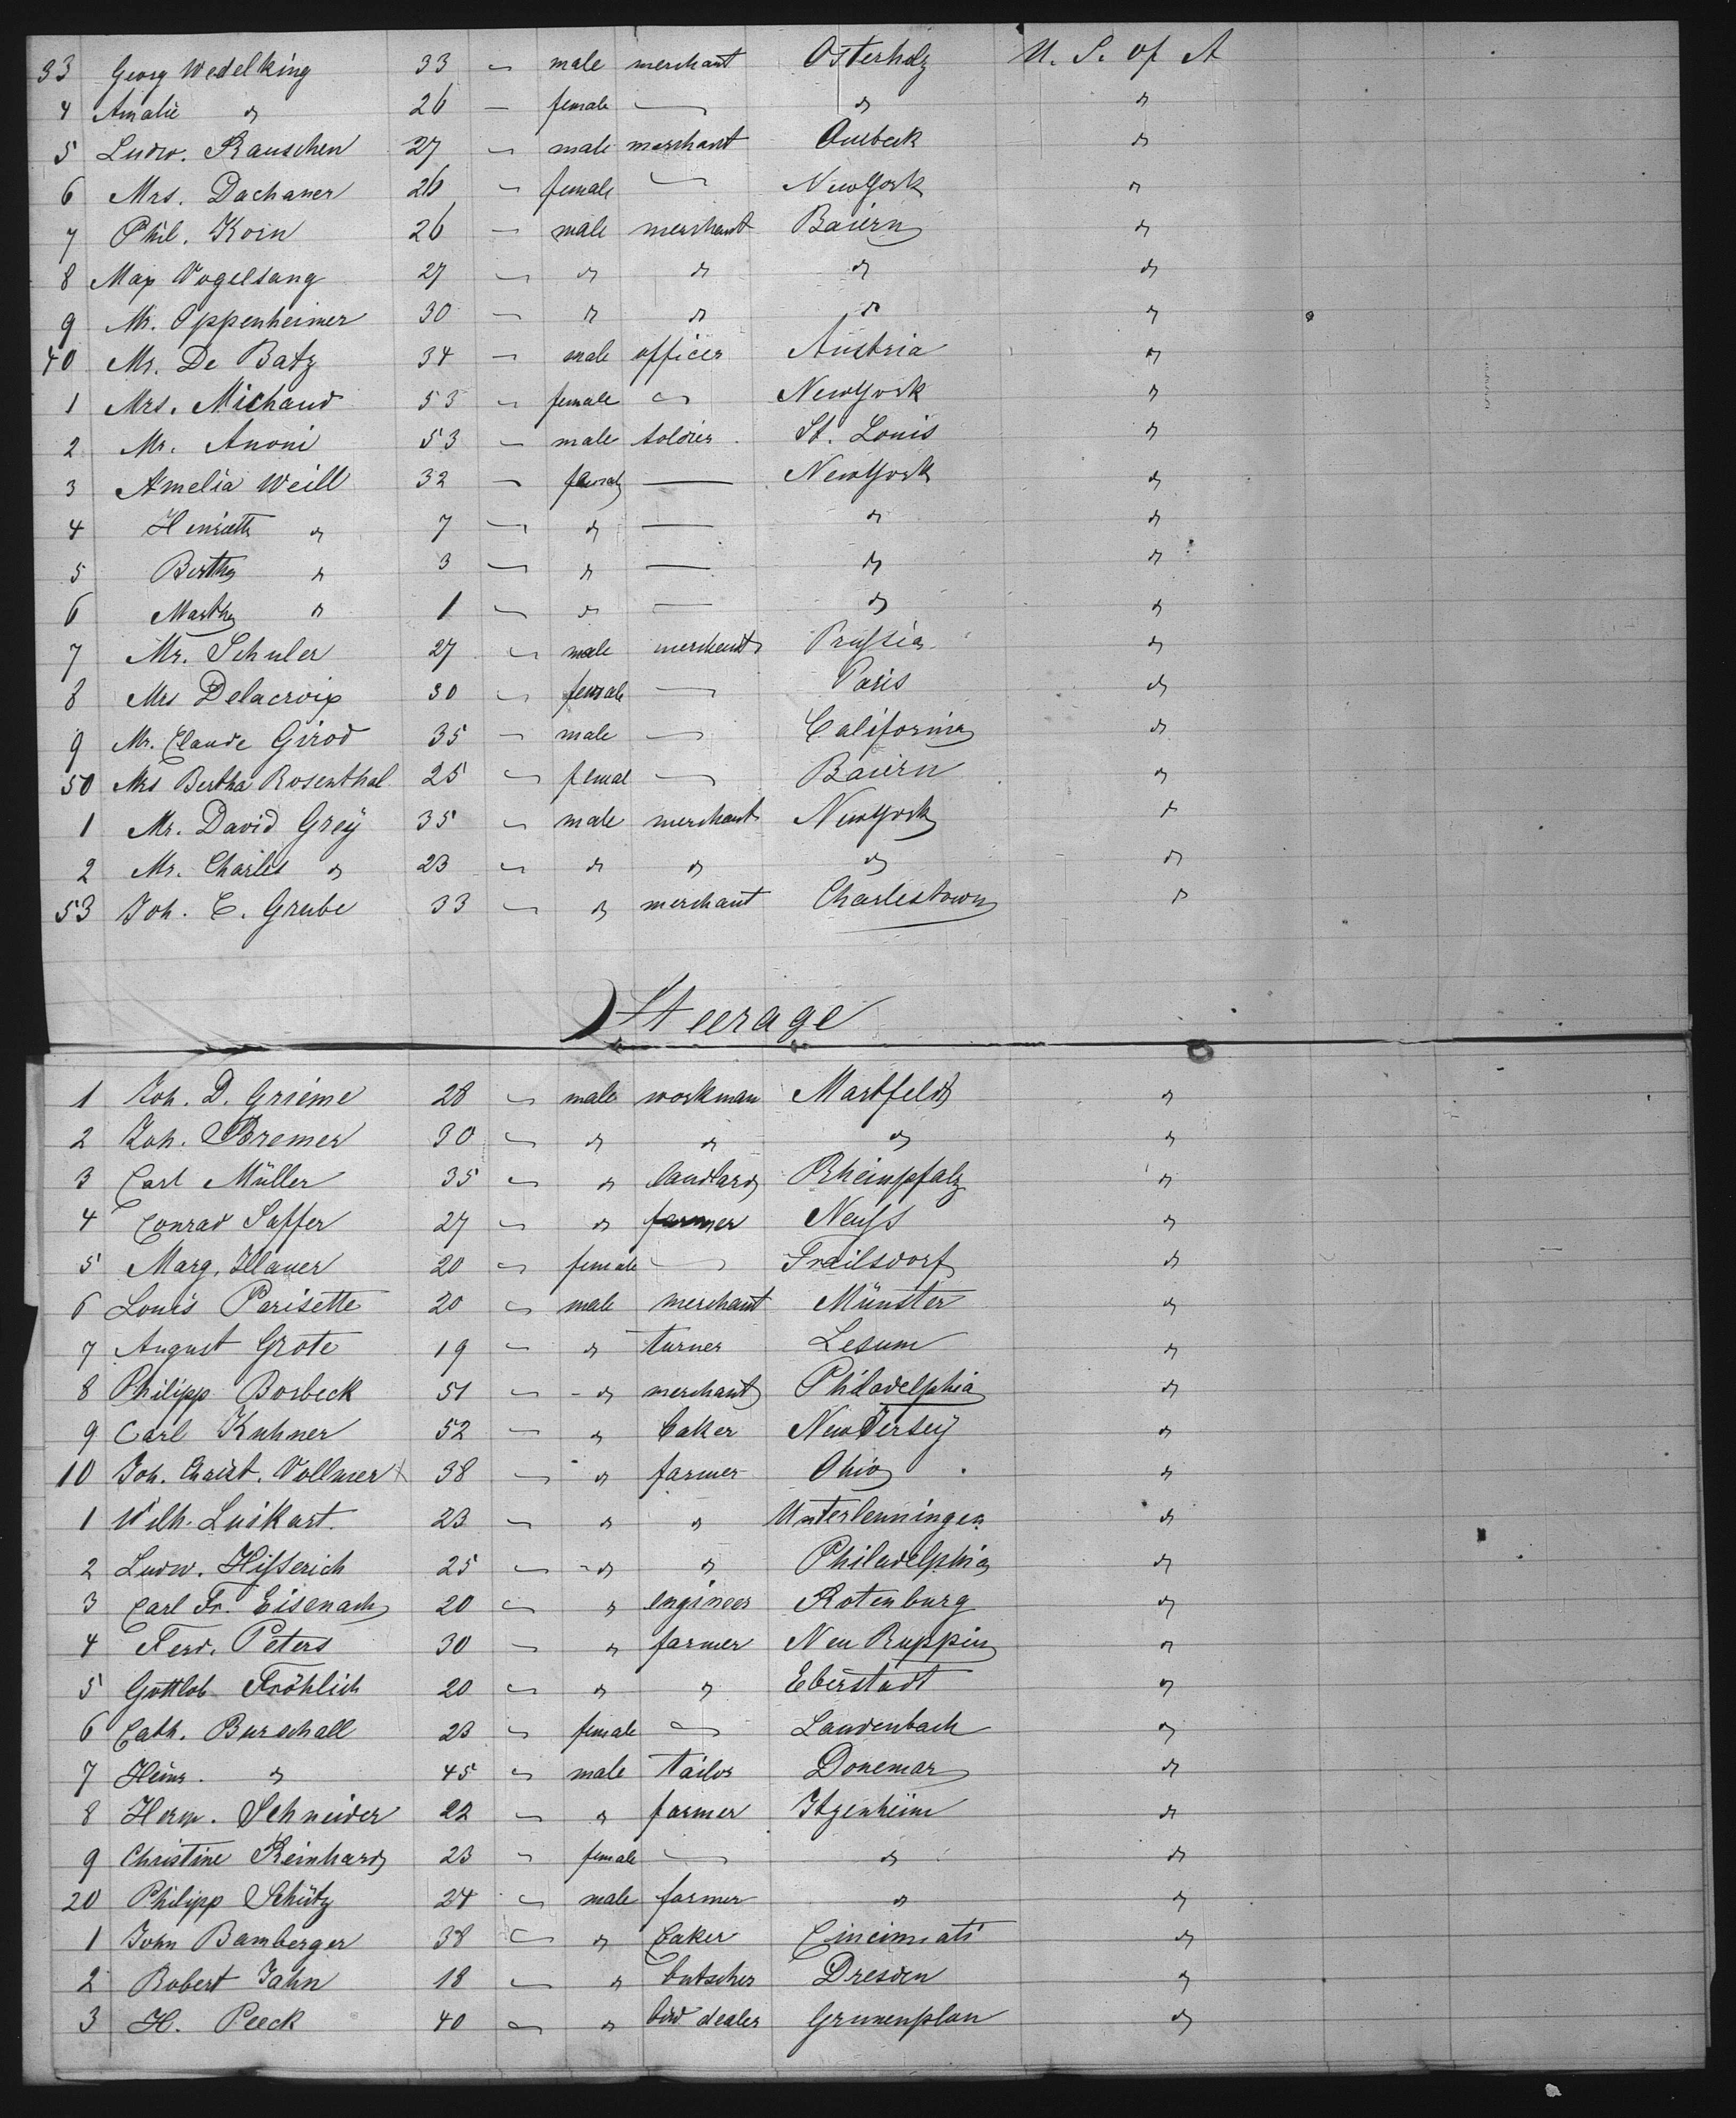 33 Georg Wedelking 33 — male merchant Osterholz U. S. of A
4 Amalie " 26 — female — " "
5 Ludw. Rauschen 27 — male merchant "
6 Mrs. Dachaner 26 — female — NewYork "
7 Phil. Koin 26 — male merchant Baiern "
8 Max Vogelsang 27 — " " " "
9 Mr. Oppenheimer 30 — " " " "
40 Mr. De Batz 34 — male officer Austria "
1 Mrs. Michaud 53 — female — NewYork "
2 Mr. Anoni 53 — male soldier St. Louis "
3 Amelia Weill 32 — female — NewYork "
4 Henriette " 7 — " — " "
5 Bertha " 3 — " — " "
6 Martha " 1 — " — " "
7 Mr. Schuler 27 — male merchant Prussia "
8 Mrs Delacroix 30 — female — Paris "
9 Mr. Claude Girod 35 — male — California "
50 Mrs Bertha Rosenthal 25 — femal — Baiern "
1 Mr. David Grey 35 — male merchant NewYork "
2 Mr. Charles " 23 — " " " "
53 Joh. C. Grube 33 — " merchant Charlestown "
Steerage
1 Joh. D. Grieme 28 — male workman Martfeld "
2 Joh. Bremer 30 — " " " "
3 Carl Müller 35 — " landlard Rheinpfalz "
4 Conrad Saffer 27 — " farmer Neuss "
5 Marg. Illauer 20 — female — Trailsdorf "
6 Louis Parisette 20 — male merchant Münster "
7 August Grote 19 — " turner Lesum "
8 Philipp Borbeck 51 — " merchant Philadelphia "
9 Carl Kuhner 52 — " baker NewJersey "
10 Joh. Christ. Vollmer 38 — " farmer Ohio "
1 Wilh. Luikart 23 — " " Unterlenningen "
2 Ludw. Hisserich 25 — " " Philadelphia "
3 Carl Fr. Eisenach 20 — " engineer Rotenburg "
4 Ferd. Peters 30 — " farmer Neu Ruppin "
5 Gottlob Fröhlich 20 — " " Eberstadt "
6 Cath. Burschall 23 — female — Laudenbach "
7 Heinr. " 45 — male tailor Donemar "
8 Herm. Schneider 22 — " farmer Itzenheim "
9 Christine Reinhard 23 — female — " "
20 Philipp Schütz 24 — male farmer " "
1 John Bamberger 38 — " baker Cincinnati "
2 Robert Jahn 18 — " butscher Dresden "
3 H. Peeck 40 — " bird dealer Grunenplan "